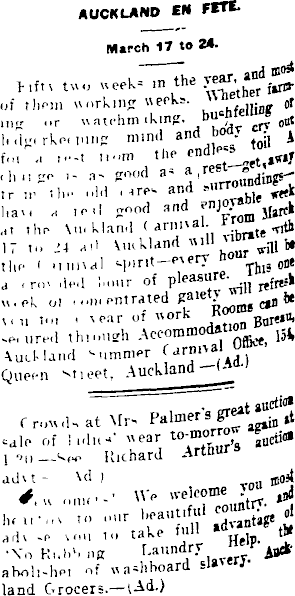 AUCKLAND EN FETE.
March 17 to 24.
Fifty two weeks in the year, and most
of them working weeks. Whether farm-
ing or watchmaking, bushfelling or
ledgerkeeping mind and body cry out
for a rest from the endless toil A
change is as good as a rest—get away
from the old cares and surroundings—
have a real good and enjoyable week
at the Auckland Carnival. From March
17 to 24 all Auckland will vibrate with
the Carnival spirit—every hour will be
a crowded hour of pleasure. This one
week of concentrated gaiety will refresh
you for a year of work Rooms can be
secured through Accommodation Bureau,
Auckland Summer Carnival Office, 154,
Queen Street, Auckland—(Ad.)
Crowds at Mrs Palmer's great auction
sale of ladies' wear to-morrow again at
1.30—See Richard Arthur's auction
advt—(Ad.)
We welcome you most
to our beautiful country, and
advise you to take full advantage of
"No Rubbing Laundry Help, the
abolisher of washboard slavery. Auck-
land Grocers.—(Ad.)